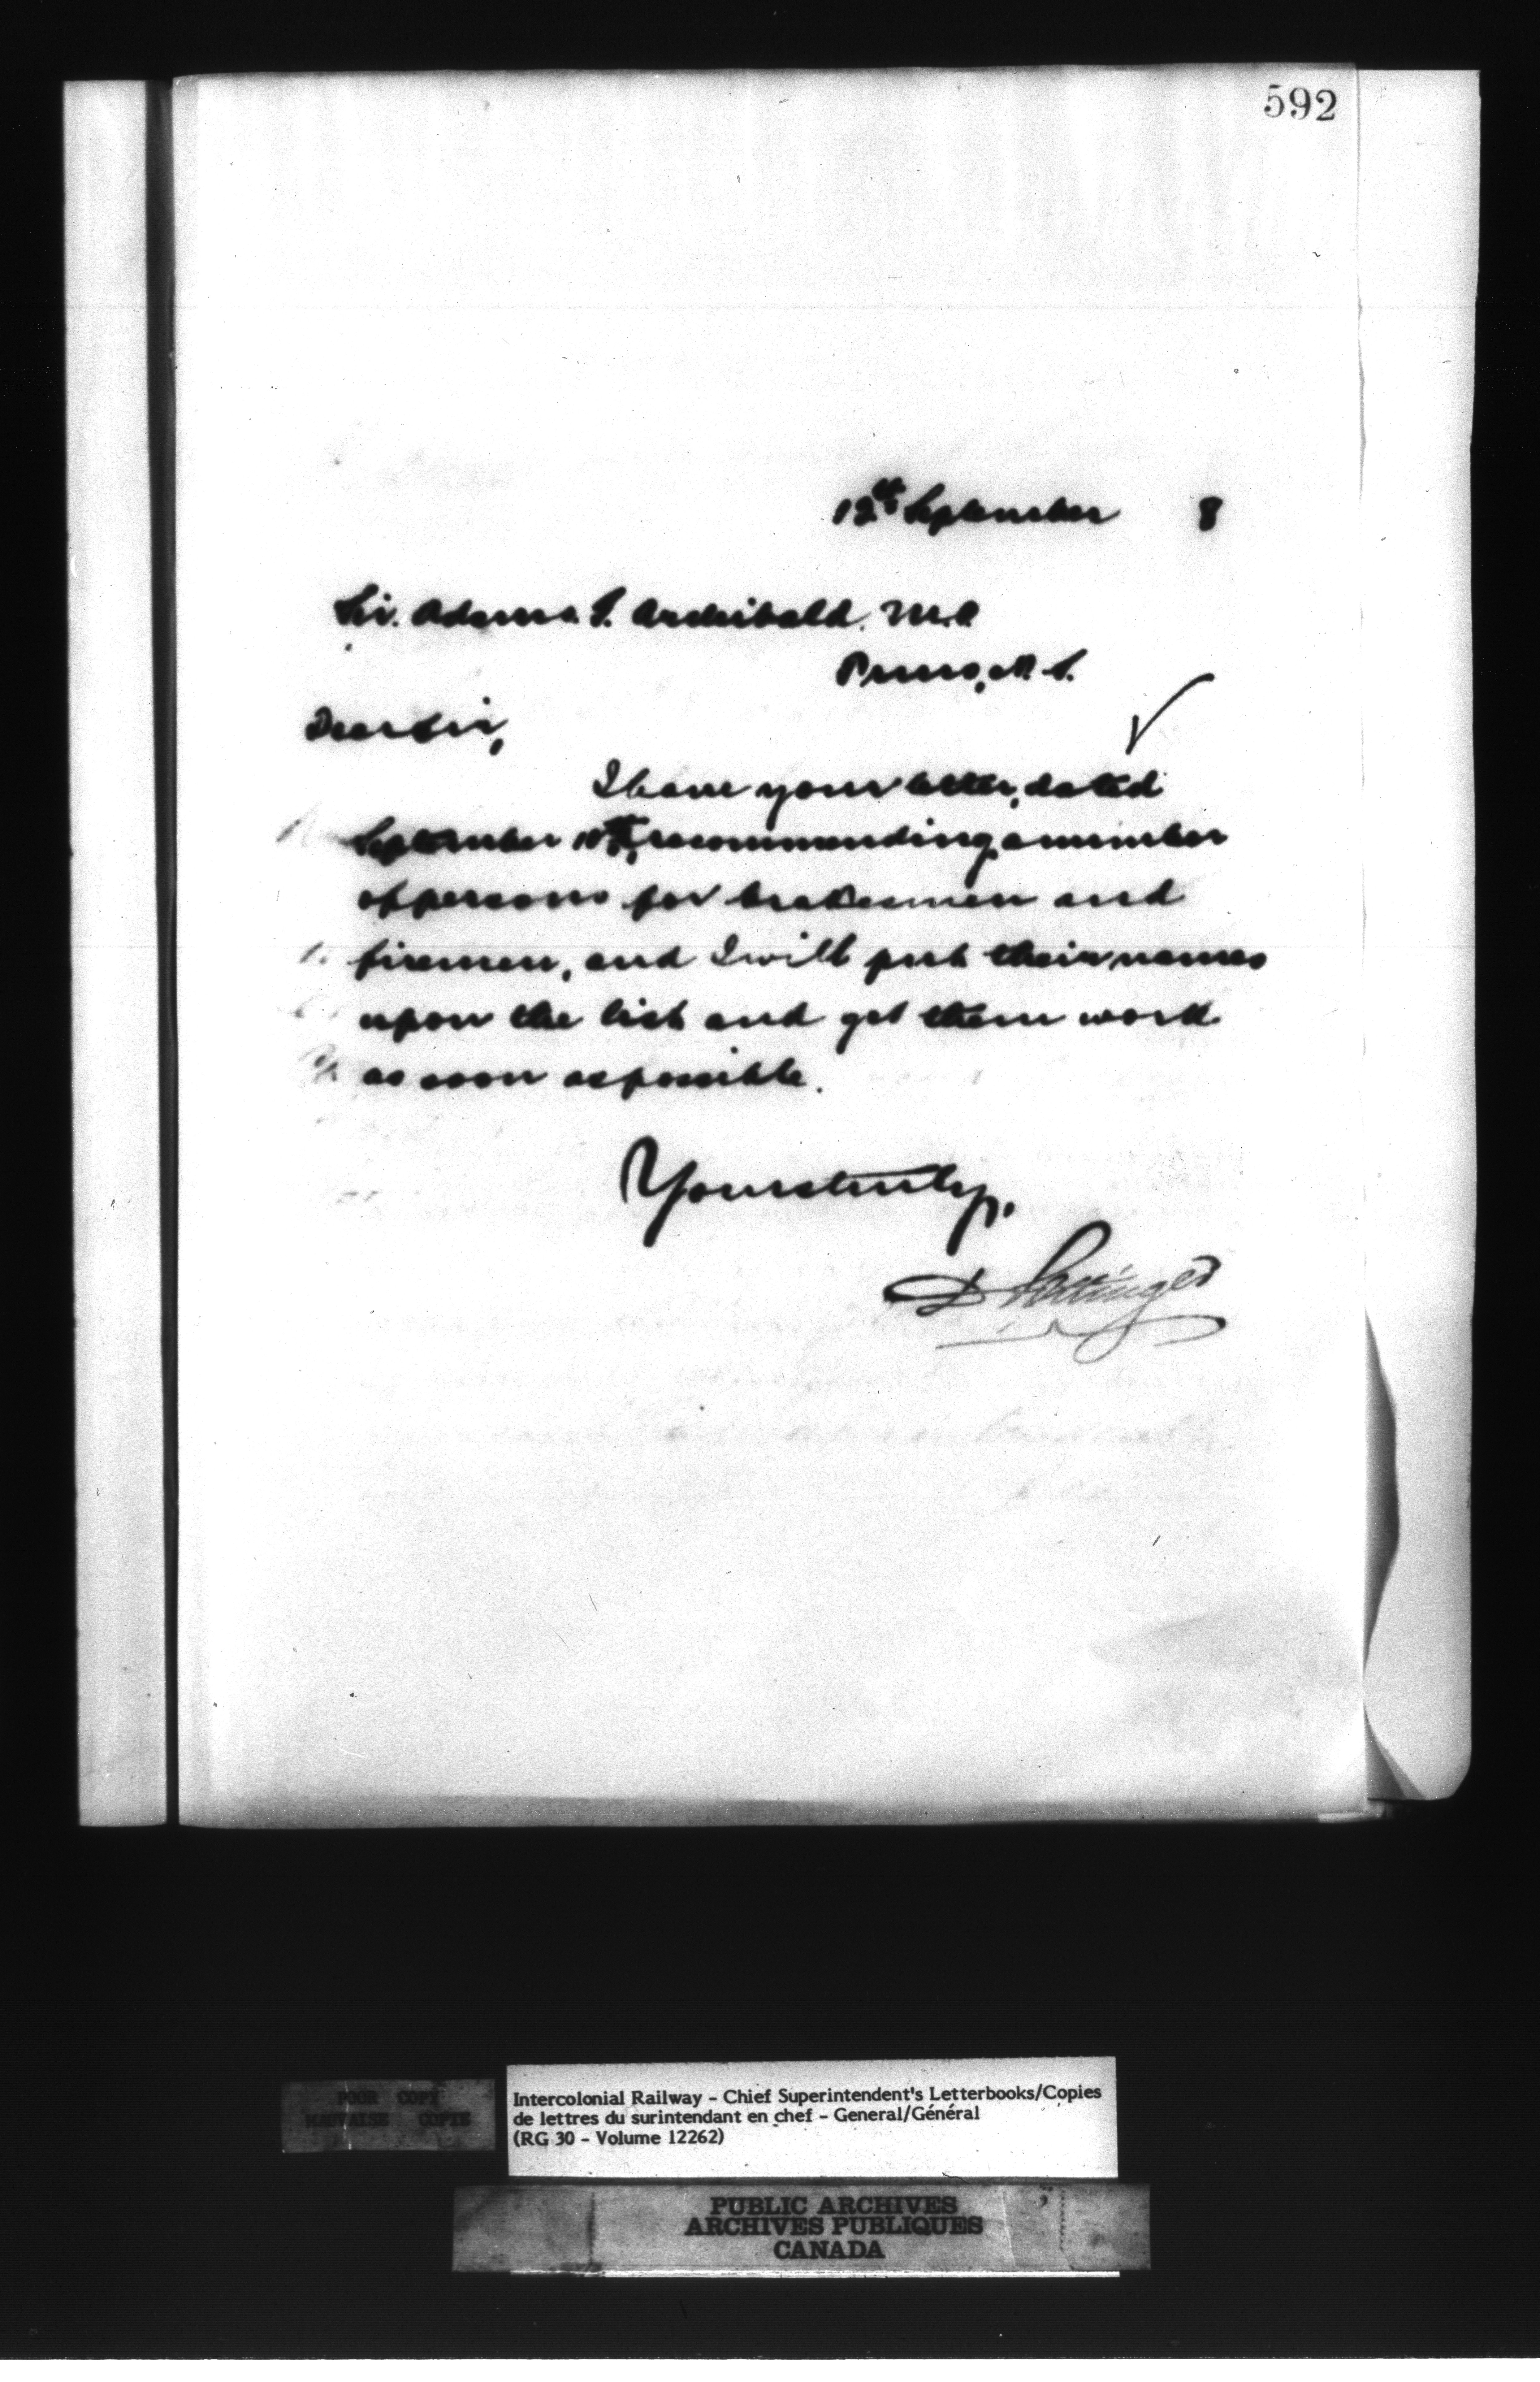 592
12th September 8
Sir. Adams G. Archibald. M.P.
Truro, N.S.
Dear Sir,
I have your letter, dated
September 10th, recommending a number
of persons for brakesmen and
firemen, and I will put their names
upon the list and get them work
as soon as possible.
Yours truly,
D Pottinger
POOR COPY
MAUVAISE COPIE
Intercolonial Railway - Chief Superintendent's Letterbooks/Copies
de lettres du surintendant en chef - General/Général
(RG 30 - Volume 12262)
PUBLIC ARCHIVES
ARCHIVES PUBLIQUES
CANADA